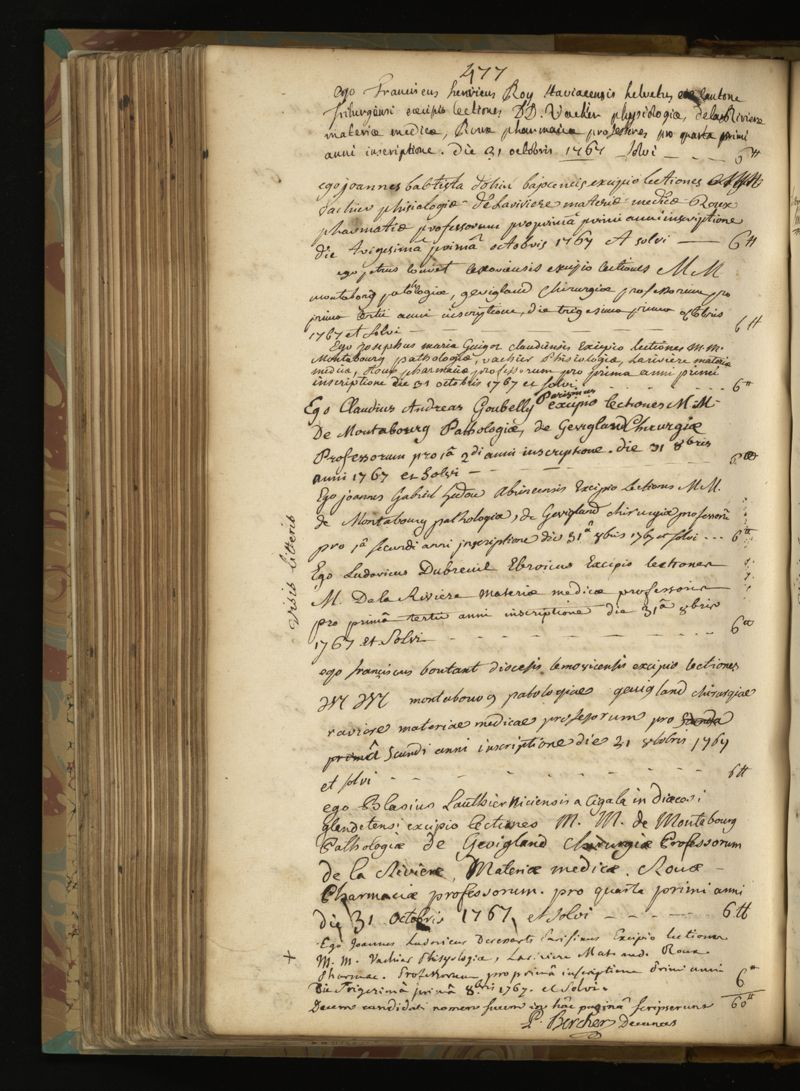 477
Ego Franciscus henricus Roy staviacensis helvetus cantone
friburgensi excipio lectiones DD. Vacher physiologiæ, delaRiviere
materiæ medicæ, Roux pharmaciæ professores pro quarta primi
anni inscriptione. Die 31 octobris 1767 solvi — — — 6tt
ego joannes babtista bajocencis excipio lectiones
Vachier phisiologiæ Delariviere materiæ medicæ Roux
pharmatiæ professorum pro primâ primi anni inscriptione
die trigesimâ primâ octobris 1767 et solvi — 6tt
ego petrus louvet lexoviensis excipio lectiones M M
montabourg patologiæ, gevigland chirurgiæ professorum pro
primo tertii anni inscriptione, die trigesima prima octobris
1767 et solvi — — — 6tt
Ego Josephus maria Guigoz claudiensis Excipio lectiones m.m.
Montabourg pathologiæ, vachier Phisiologiæ, Lariviere materia
medica, Roux pharmaciæ professorum pro prima anni primi
inscriptione die 31 octobris 1767 et solvi 6tt
Ego Claudius Andreas Goubelly Parisinus excipio lectiones M.M.
De Montabourg Pathologiæ, de Gevigland Chirurgiæ
Professorum pro 1â 2di anni inscriptione. die 31 8bris
anni 1767 et Solvi — 6tt
Ego joannes Gabriel Excipio lectiones M.M.
de Montabourg pathologiæ, de Gevigland chirurgiæ professorū
pro 1â secundi anni inscriptione die 31â 8bris 1767 et solvi ... 6tt
Visis litteris
Ego Ludovicus Dubreuil Ebroicus Excipio lectiones
M. Dela Riviere materiæ medicæ professoris
pro primâ tertii anni inscriptione die 31â 8bris
1767 et Solvi — 6tt
ego franciscus boutant diocesis lemovicensis excipio lectiones
M M montabourg patologiae gevigland chirurgiae
raviere materiae medicae professorum pro
primâ scundi anni inscriptione die 31 8lobris 1767
et solvi — 6tt
ego Blasius Lauthier Niciensis a Cigala in Diœcosi
glandetensi excipio lectiones M. M. de Montabourg
Pathologiæ de Gevigland Chirurgiæ Professorum
de la Riviere, Materiæ medicæ. Roux —
Pharmaciæ professorum. pro quarta primi anni
die 31 Octobris 1767 et solvi — — — 6tt
+ Ego Joannes Ludovicus Desessarts Parisinus Excipio lectiones
M. M. Vachier Phisyologiæ, Lariviere Mat. med. Roux
Pharmac. Professorum pro primâ inscriptione Primi anni
Die Trigesimâ primâ 8bris 1767. et Solvi. 6tt
Decem candidati nomen suum in hâc paginâ scripserunt 60tt
P. Bercher Decanus